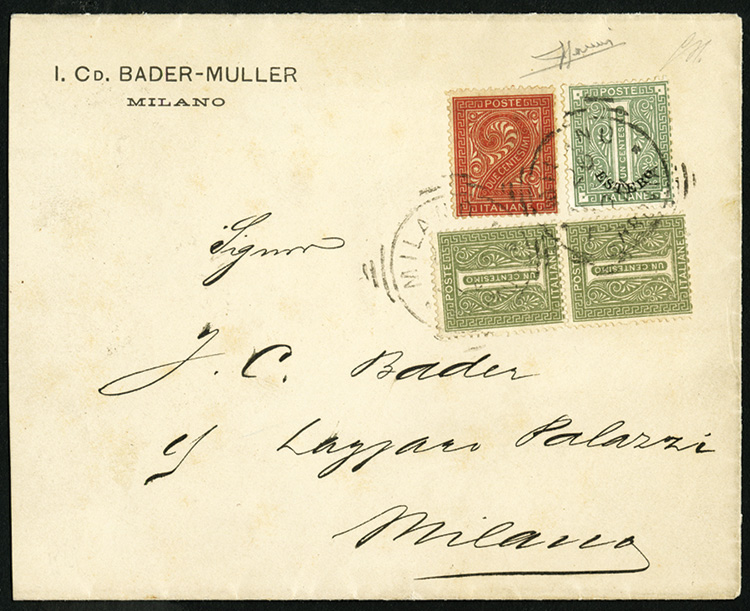 I. CD. BADER-MULLER
MILANO
POSTE
2
DUE CENTESIMI
ITALIANE
POSTE
1
UN CENTESIMO
ESTERO
ITALIANE
MILANO
POSTE
1
UN CENTESIMO
ITALIANE
POSTE
1
UN CENTESIMO
ITALIANE
Signor
J. C. Bader
Lazzaro Palazzi
Milano